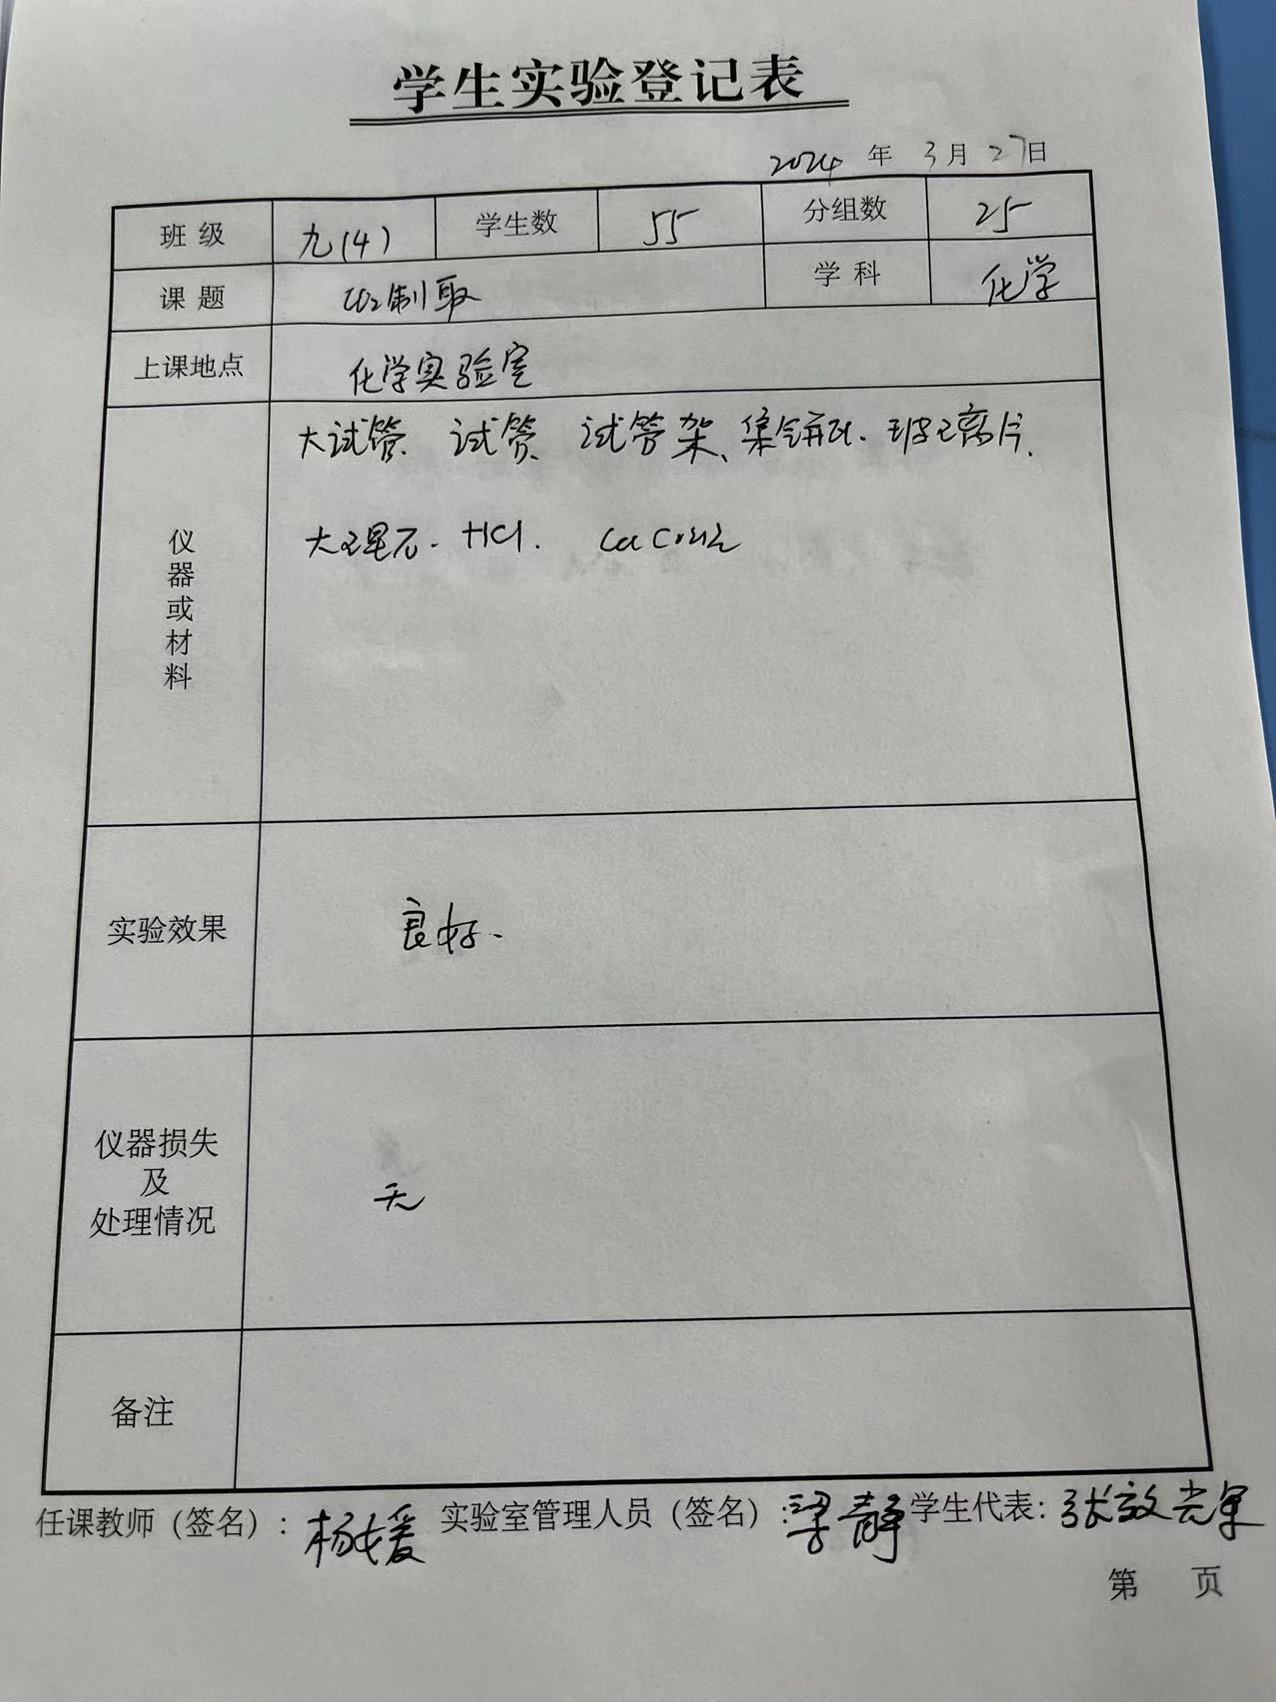 学生实验登记表
2024年3月27日
班级 九(4) 学生数 55 分组数 25
课题 CO2制取 学科 化学
上课地点 化学实验室
仪器或材料
大试管、试管、试管架、集气瓶、玻璃片、
大理石、HCl、
实验效果 良好.
仪器损失
及
处理情况
无
备注
任课教师（签名）：杨媛 实验室管理人员（签名）：梁静 学生代表：张
第 页